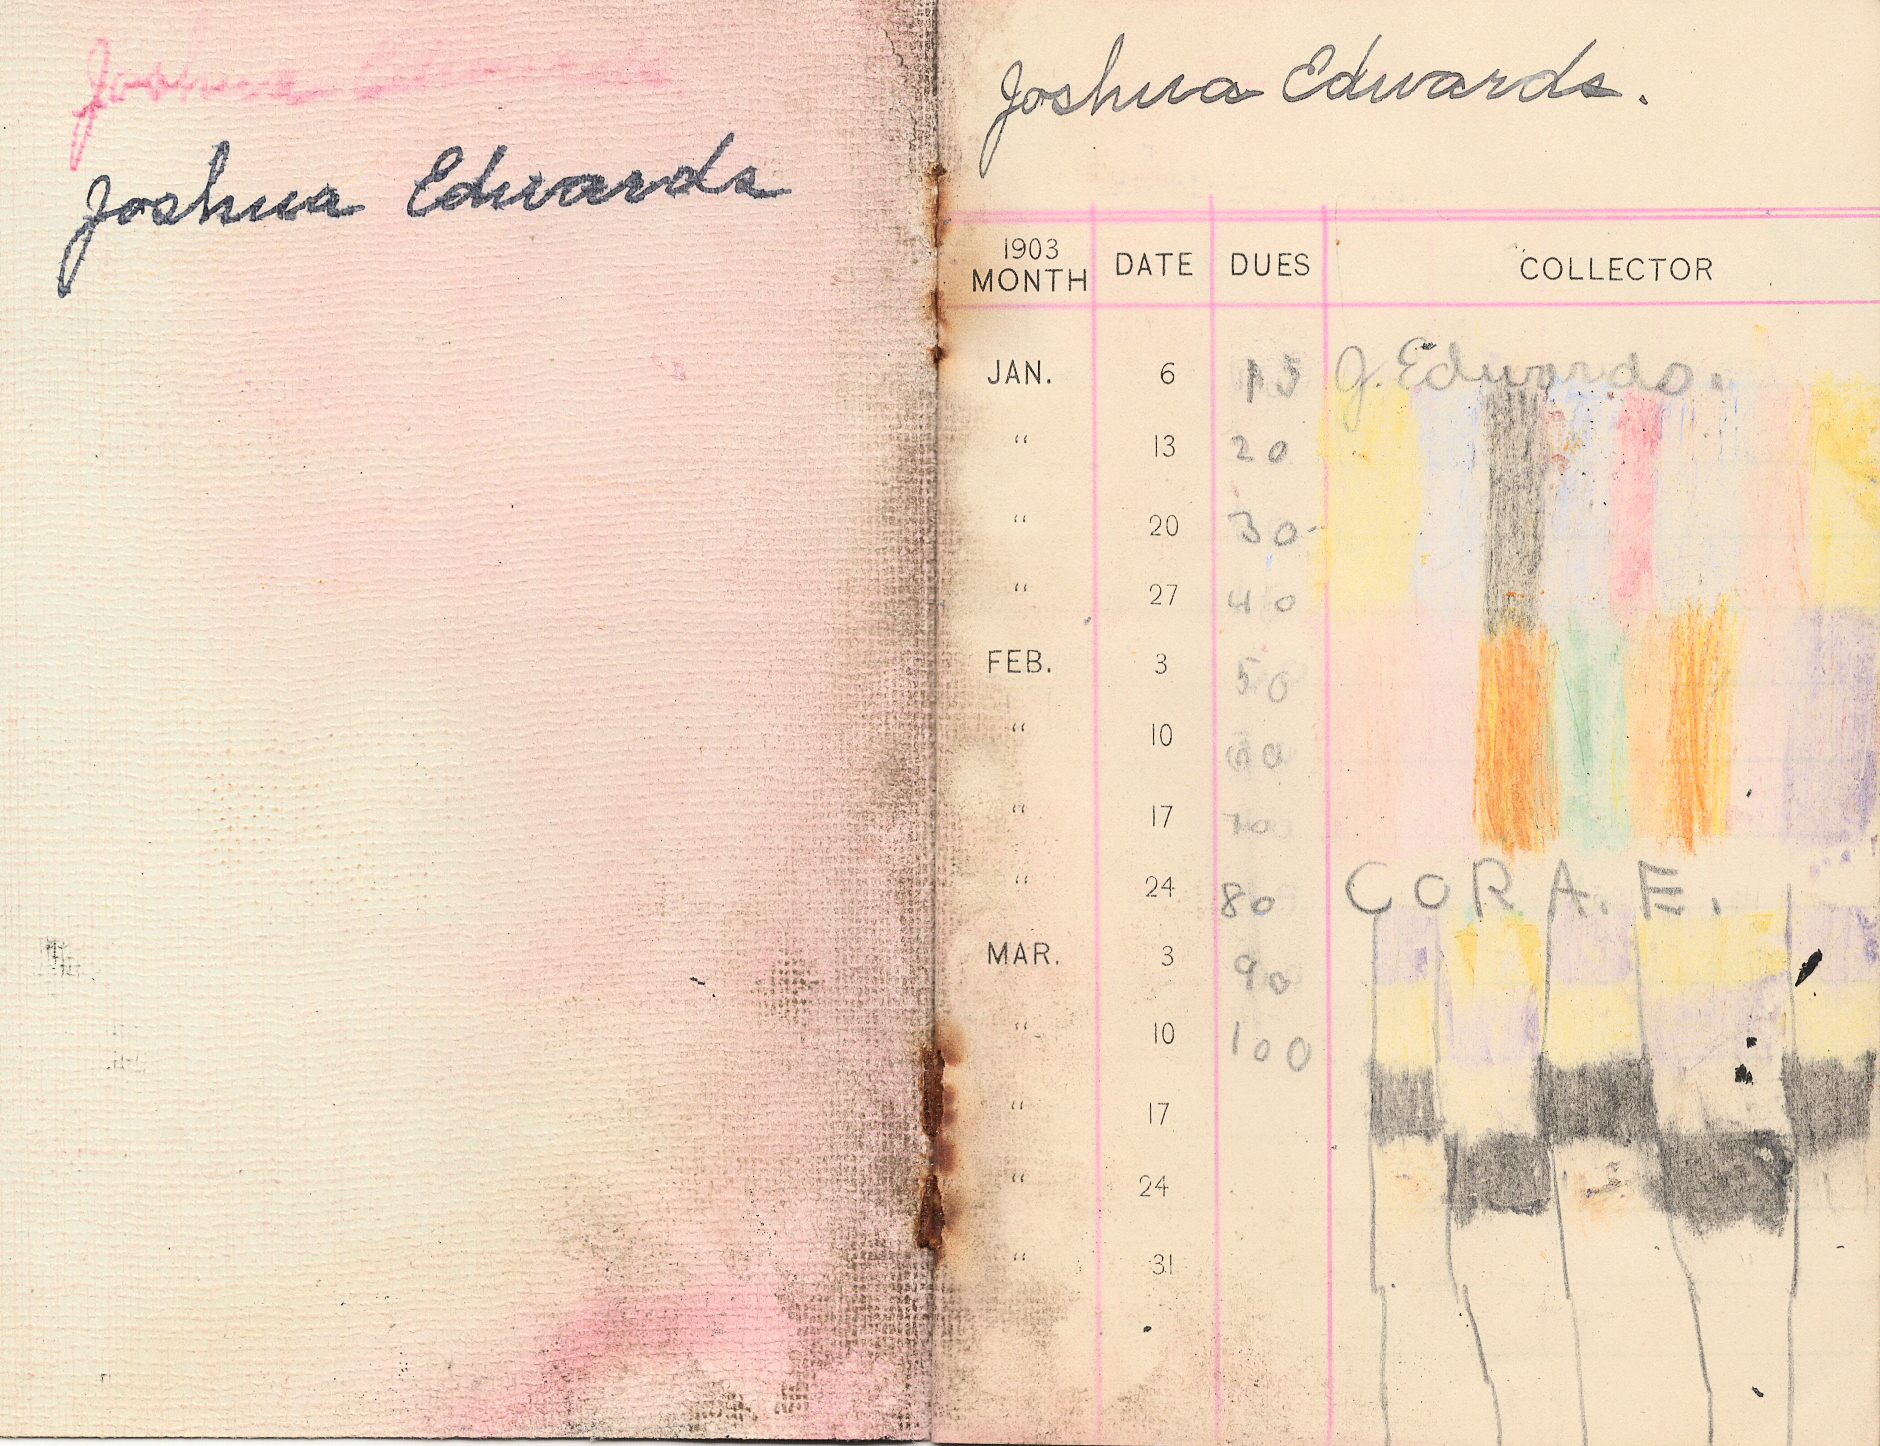 Joshua Edwards
Joshua Edwards
Joshua Edwards.
1903 MONTH DATE DUES COLLECTOR
JAN. 6 15 J. Edwards.
" 13 20
" 20 30-
" 27 40
FEB. 3 50
" 10 60
" 17 70
" 24 80 CORA. E.
MAR. 3 90
" 10 100
" 17
" 24
" 31